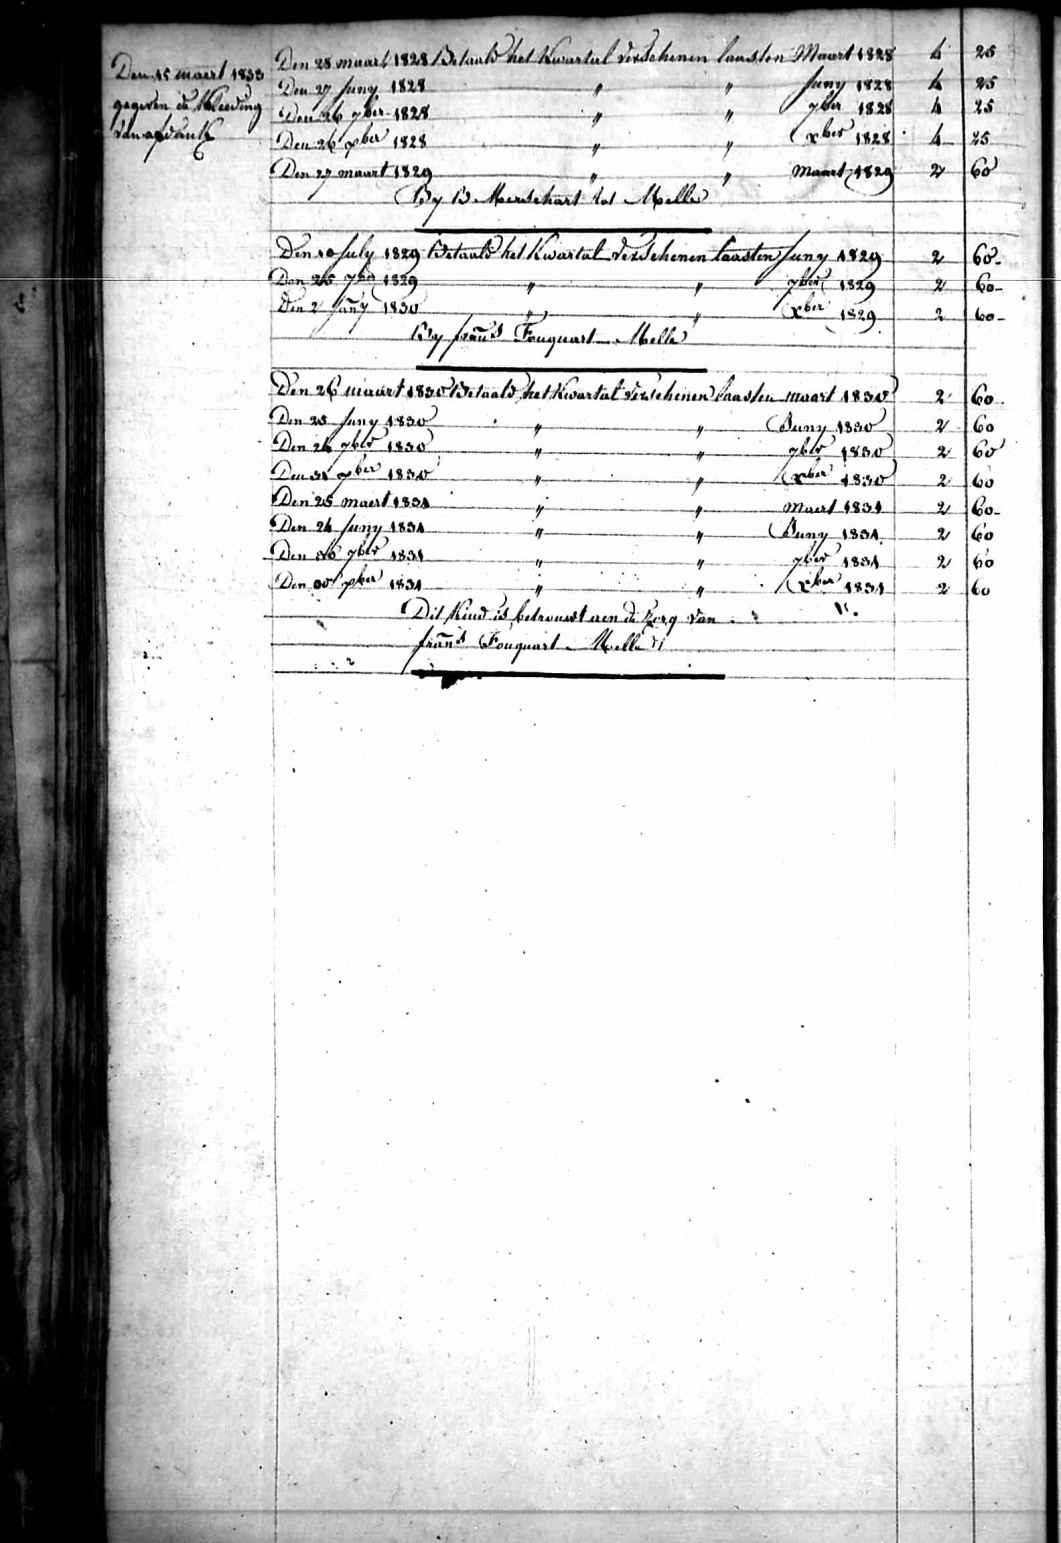 Den 15 maert 1833
gegeven de kleeding
van
Den 28 maart 1828 Betaald het Kwartal verschenen laasten Maart 1828 4 25
Den 27 Juny 1828 " " Juny 1828 4 25
Den 26 7ber 1828 " " 7ber 1828 4 25
Den 26 xber 1828 " " xber 1828 4 25
Den 27 maart 1829 " " maart 1829 2 60
By B Merschart tot Melle
Den 10 July 1829 Betaald het Kwartal verschenen laasten Juny 1829 2 60-
Den 25 7ber 1829 " " 7ber 1829 2 60-
Den 2 Jany 1830 " " xber 1829 2 60-
By frans Fouquart Melle
Den 26 maart 1830 Betaald het Kwartal verschenen laasten maart 1830 2 60
Den 23 Juny 1830 " " Juny 1830 2 60
Den 24 7ber 1830 " " 7ber 1830 2 60
Den 31 xber 1830 " " xber 1830 2 60
Den 25 maert 1831 " " maert 1831 2 60-
Den 24 Juny 1831 " " Juny 1831 2 60
Den 30 7ber 1831 " " 7ber 1831 2 60
Den 30 xber 1831 " " xber 1831 2 60
Dit Kind is betrouwt aen de Zorg van
frans Fouquart Melle